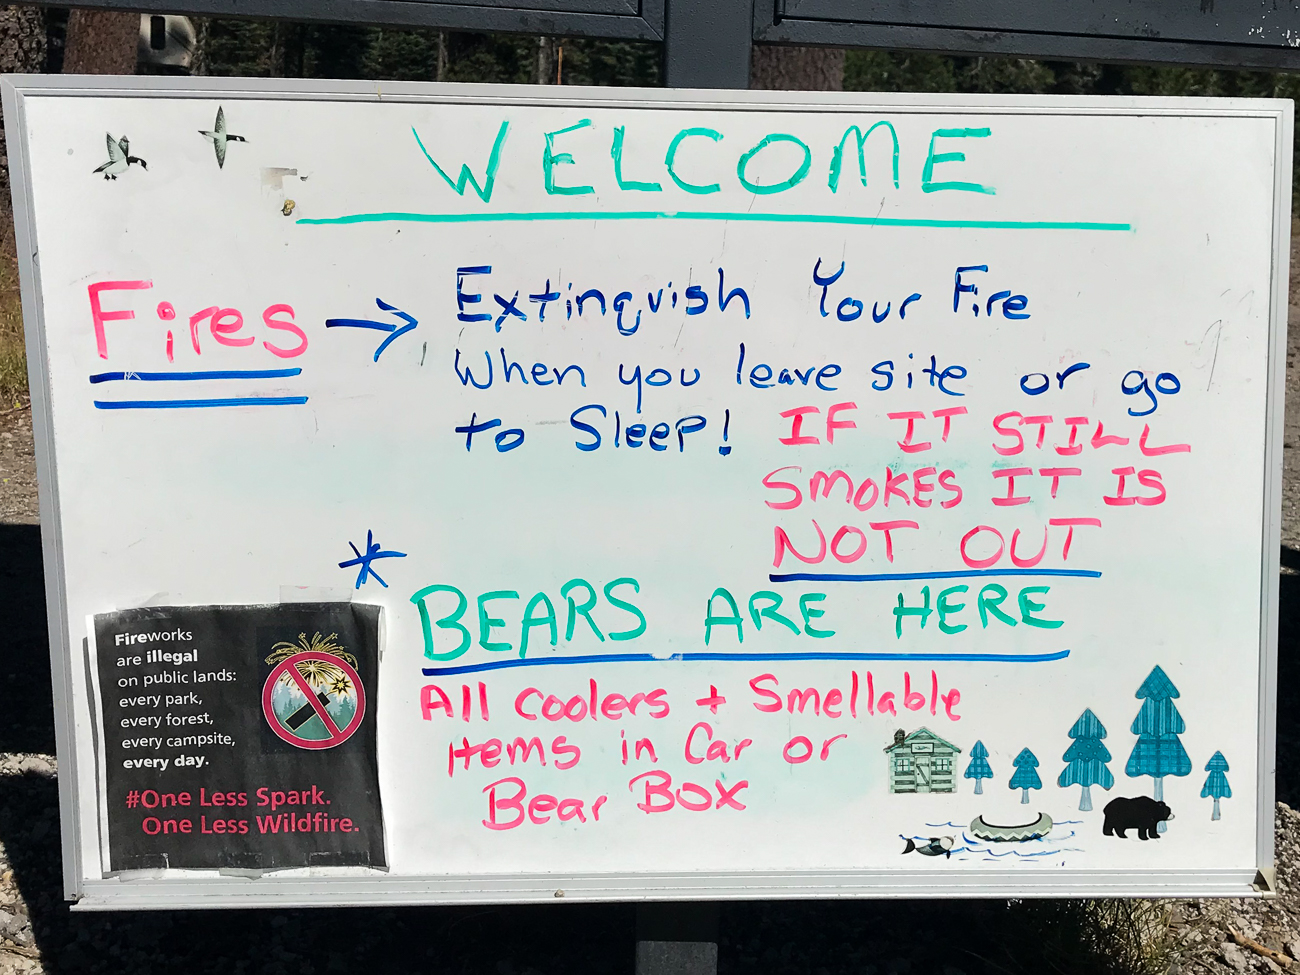 WELCOME
Fires → Extinguish Your Fire
When you leave site or go
to Sleep! IF IT STILL
SMOKES IT IS
NOT OUT
* BEARS ARE HERE
All coolers + Smellable
items in Car or
Bear Box
Fireworks
are illegal
on public lands:
every park,
every forest,
every campsite,
every day.
#One Less Spark.
One Less Wildfire.